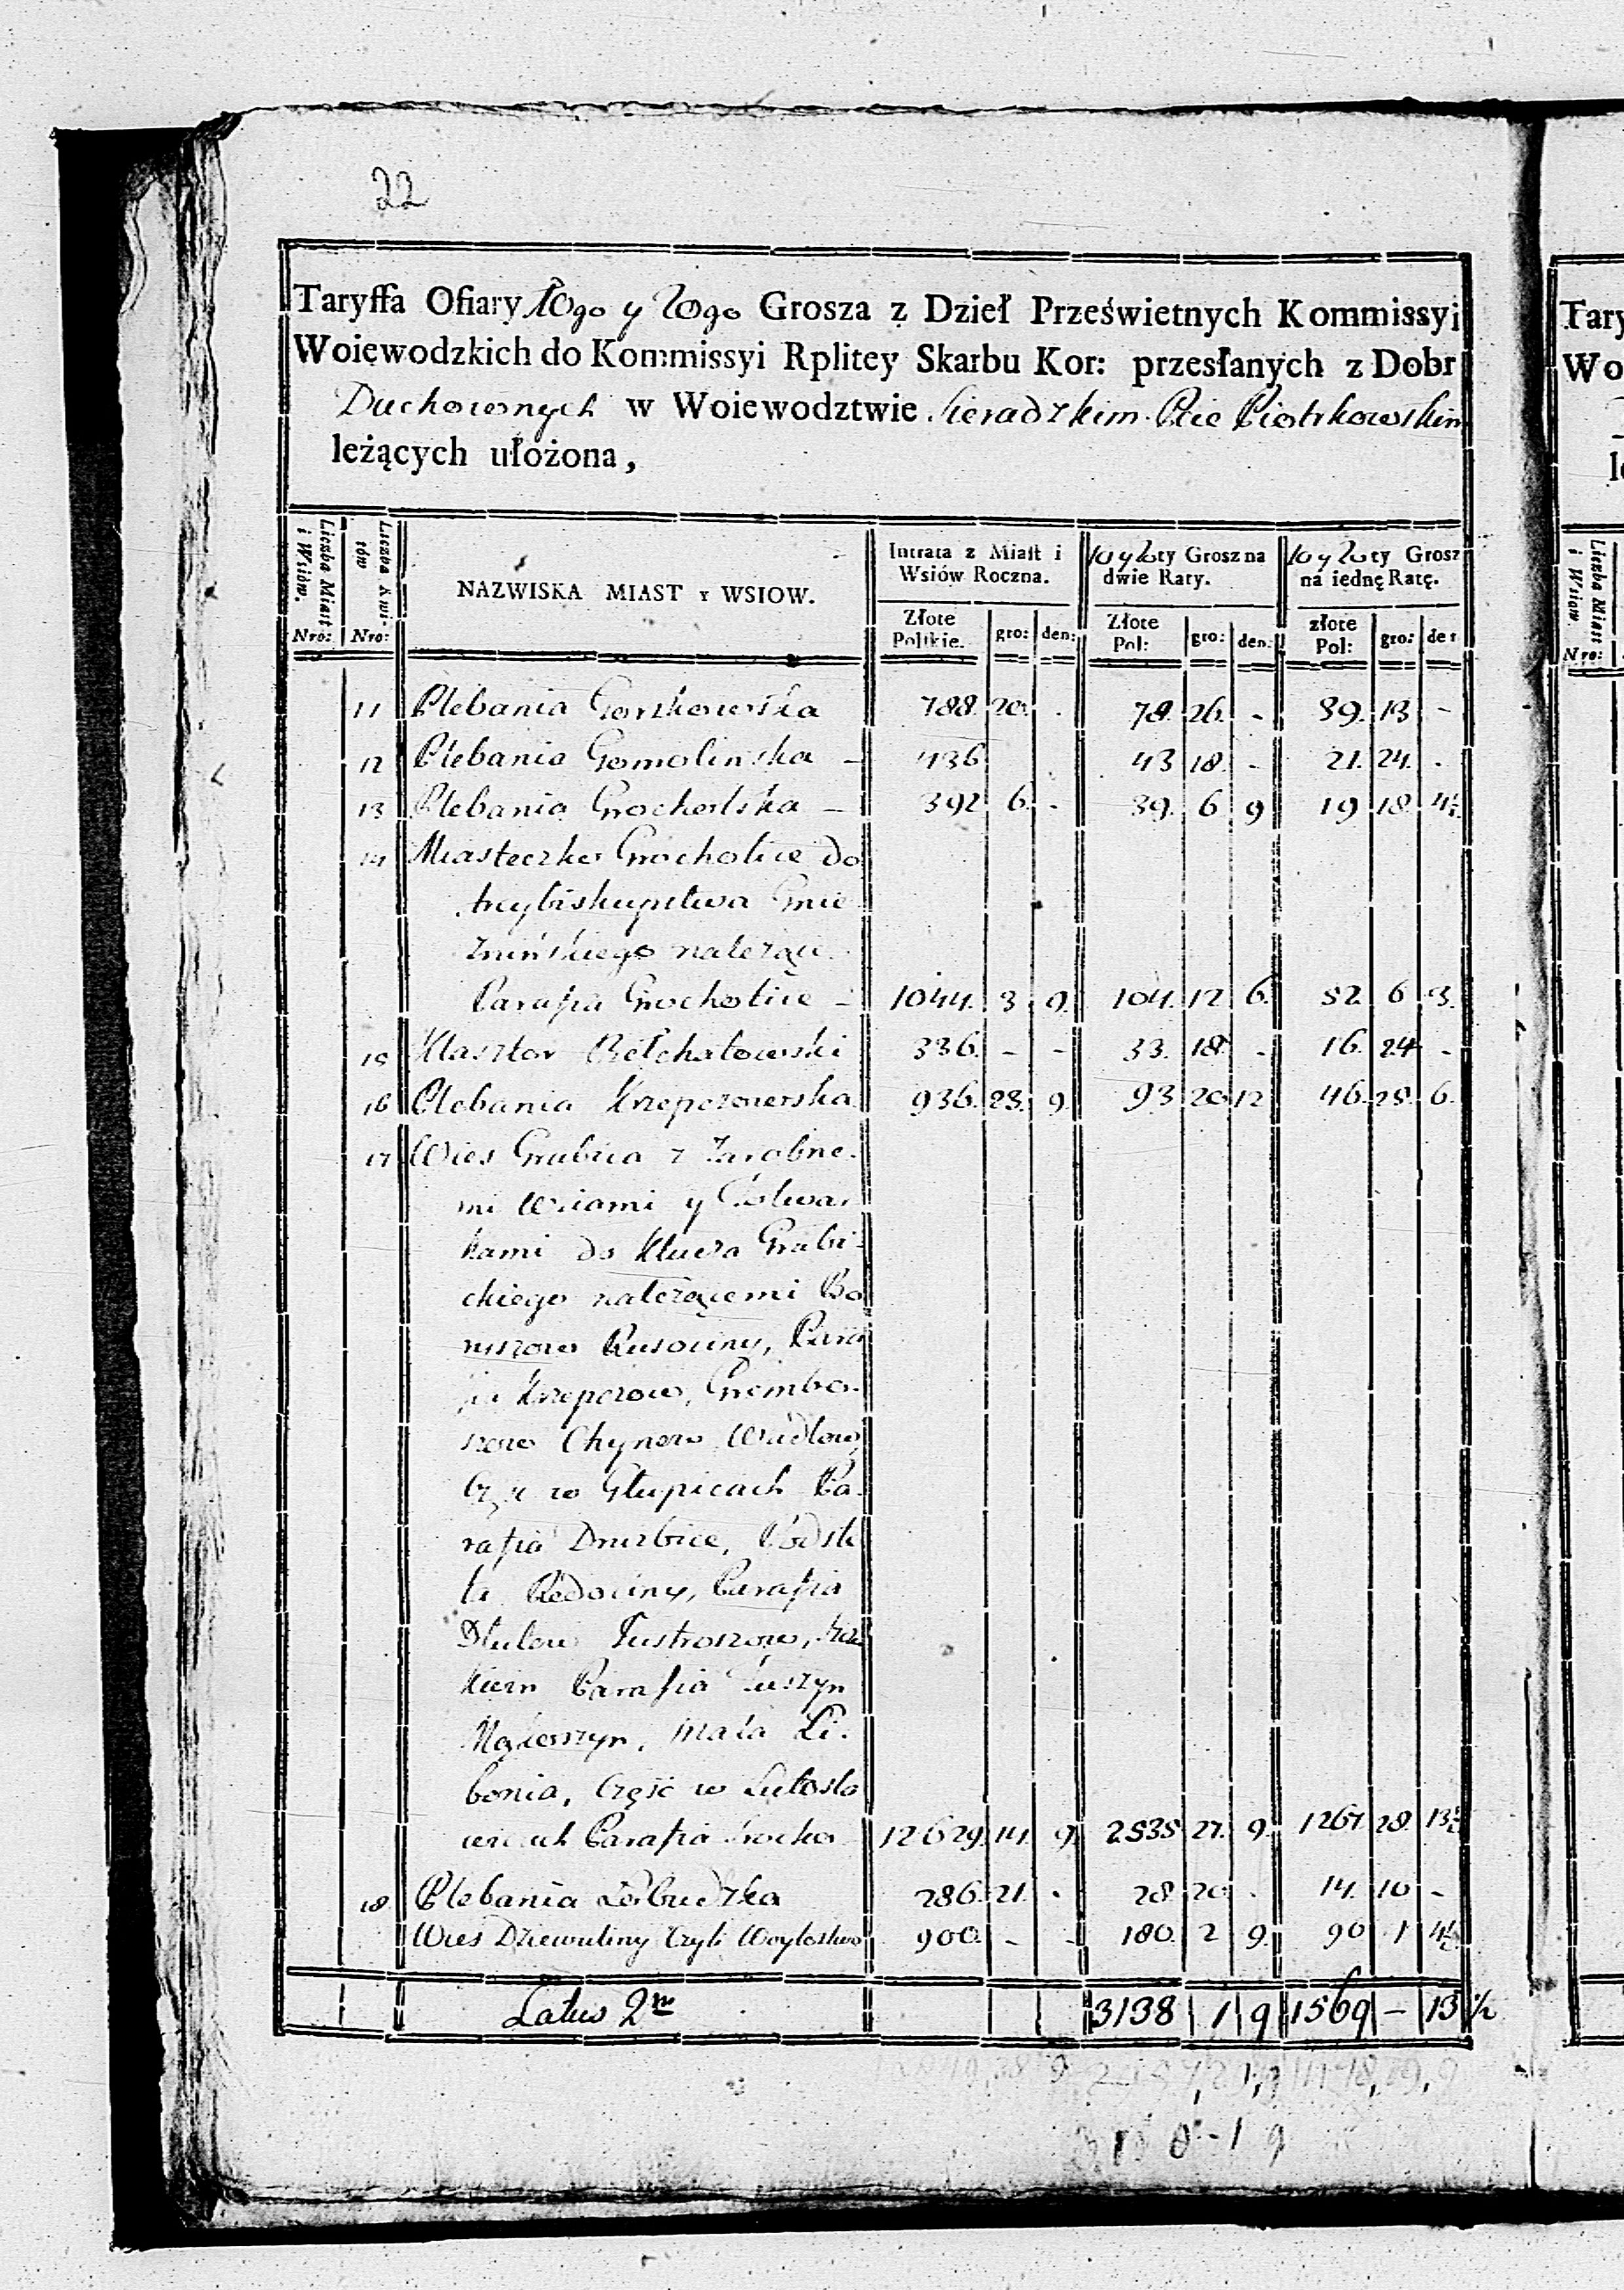 22
Taryffa Ofiary 10go y 20go Grosza z Dzieł Prześwietnych Kommissyi
Woiewodzkich do Kommissyi Rplitey Skarbu Kor: przesłanych z Dobr
Duchownych w Woiewodztwie Sieradzkim Pcie Piotrkowskim
leżących ułożona,
Liczba Miast i Wsiów. Nro:
Liczba Kwitów Nro:
NAZWISKA MIAST Y WSIOW.
Intrata z Miast i Wsiów Roczna.
10 y 20ty Grosz na dwie Raty.
10 y 20ty Grosz na iednę Ratę.
Złote Polskie. gro: den: Złote Pol: gro: den: złote Pol: gro: de
11 Plebania Gorzkowska 788. 20. . 78. 26. - 39. 13 -
12 Plebania Gomolinska - 436 43 18. - 21. 24. .
13 Plebania Grocholska - 392 6. - 39. 6 9 19 18. 4½
14 Miasteczko Grocholice do
Arcybiskupstwa Gnie
znińskiego należące
Parafia Grocholice - 1044. 3. 9. 104. 12 6. 52 6 3.
15 Klasztor Bełchatowski 336. - - 33. 18. - 16. 24 -
16 Plebania Krzepczowska 936. 28. 9. 93 20 12 46. 25. 6.
17 Wies Grabica z Zarobne.
mi Wsiami y Folwar
kami do Klucza Grabi
ckiego należącemi Bo
ruszow Rusociny, Para
fia Krzepczow, Grembo.
szow Chynow Wadlow,
Częsc w Głupicach Pa.
rafia Drużbice,
Redociny, Parafia
Dłutow Tustroszow,
Parafia Tuszyn
Mała Li.
bonia, Część w Lutosła
wicach Parafia Srocko 12629. 14. 9. 2535 27. 9. 1267. 28. 13½
18 Plebania Łobudzka 286. 21. . 28 20 . 14. 10 -
Wies Dziewuliny Czyli Woytostwo 900. - - 180. 2 9. 90 1 4½
Latus 2m 3138 1 9 1569 - 13 ½